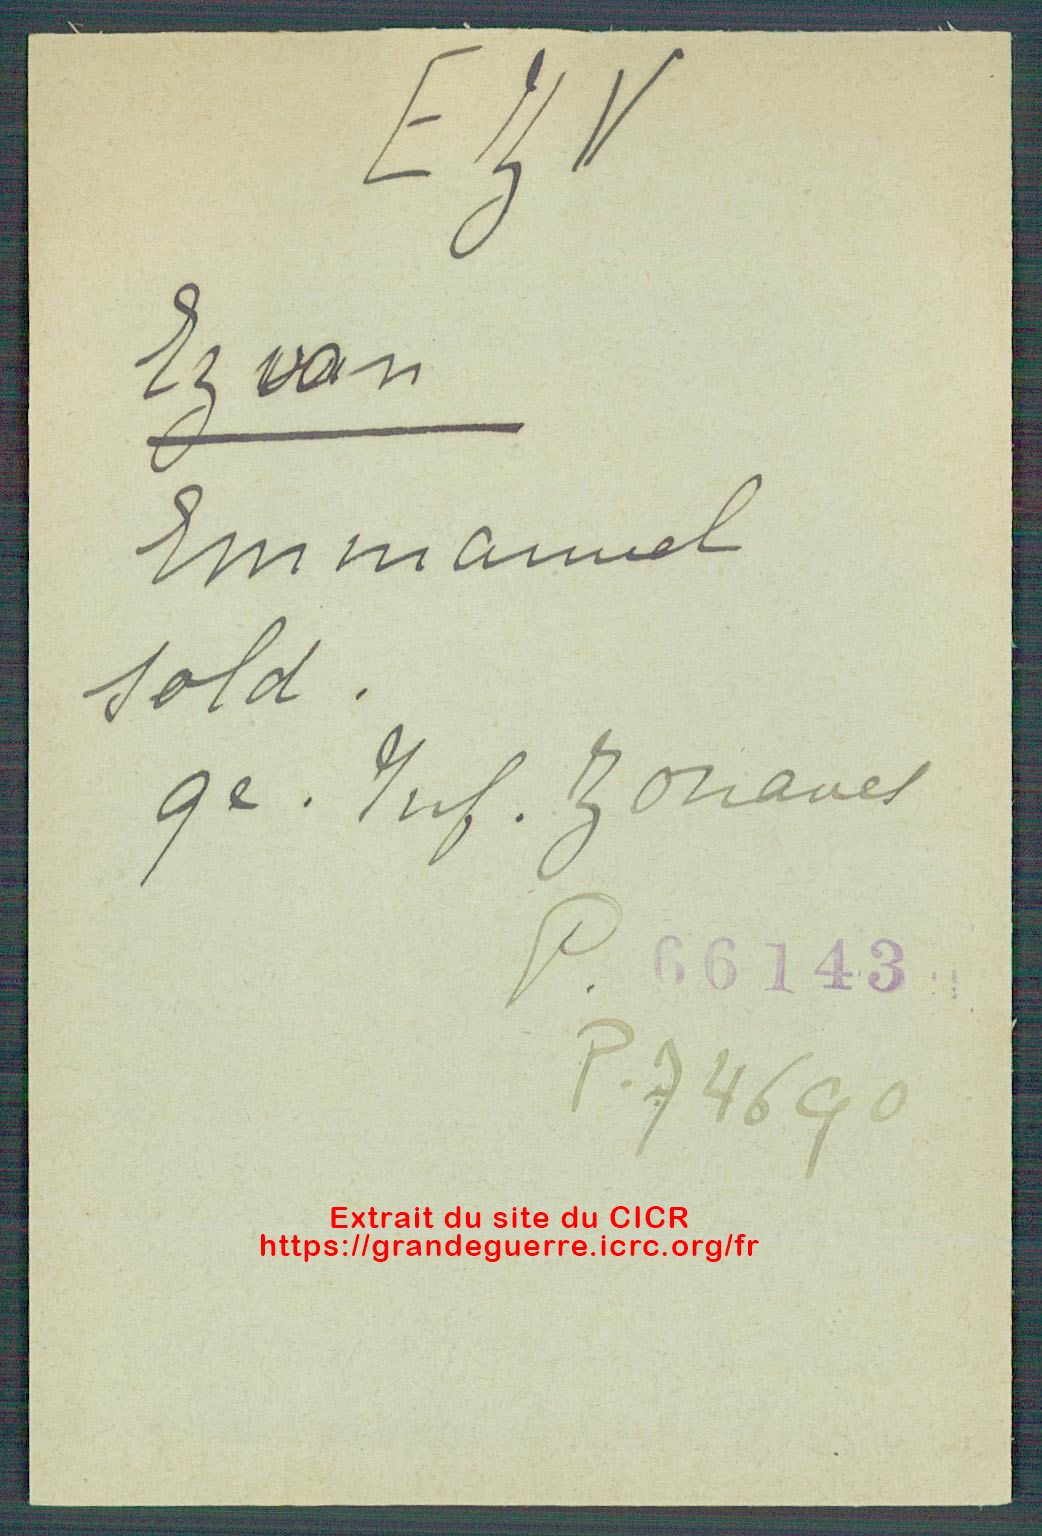 EZV
Ezvan
Emmanuel
sold.
9e. Inf. Zouaves
P. 66143
P. 74690
Extrait du site du CICR
https://grandeguerre.icrc.org/fr